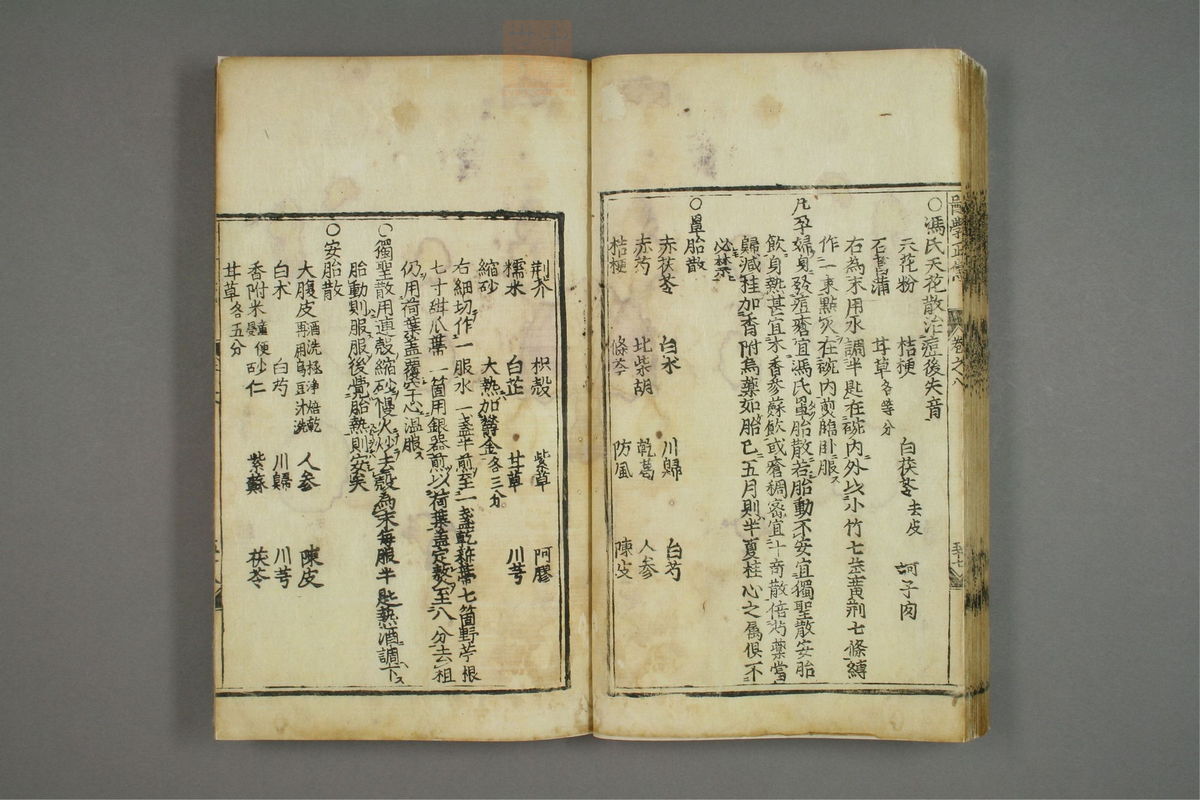 醫學正傳 卷之八 五十七
○馮氏天花散治痘後失音
天花粉 桔梗 白茯苓去皮 訶子肉
石菖蒲 甘草各等分
右為末用水調半匙在碗內外以小竹七莖黃荊七條縛
作一束點火在碗內煎臨卧服
凡孕婦身發痘瘡宜馮氏罩胎散若胎動不安宜獨聖散安胎
飲身熱甚宜木香參蘇飲或瘡稠密宜十奇散倍芍藥當
歸減桂加香附烏藥如胎已五月則半夏桂心之屬俱不
必禁忌
○罩胎散
赤茯苓 白朮 川歸 白芍
赤芍 北柴胡 乾葛 人參
桔梗 條芩 防風 陳皮
荊芥 枳殼 紫草 阿膠
糯米 白芷 甘草 川芎
縮砂 大熱加鬱金各三分
右細切作一服水一盞半煎至一盞乾柿蒂七箇野苧根
七寸甜瓜蒂一箇用銀器煎以荷葉蓋定熬至八分去柤
仍用荷葉蓋覆空心溫服
○獨聖散用連殼縮砂慢火炒去殼為末每服半匙熱酒調下
胎動則服服後覺胎熱則安矣
○安胎散
大腹皮酒洗極淨焙乾再用烏豆汁洗 人參 陳皮
白朮 白芍 川歸 川芎
香附米童便浸 砂仁 紫蘇 茯苓
甘草各五分